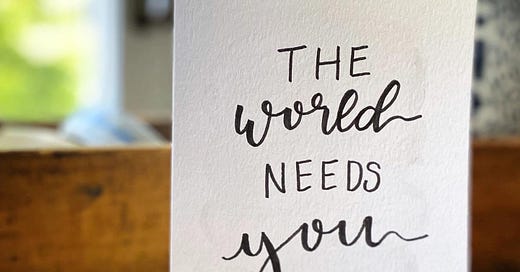 THE
world
NEEDS
you